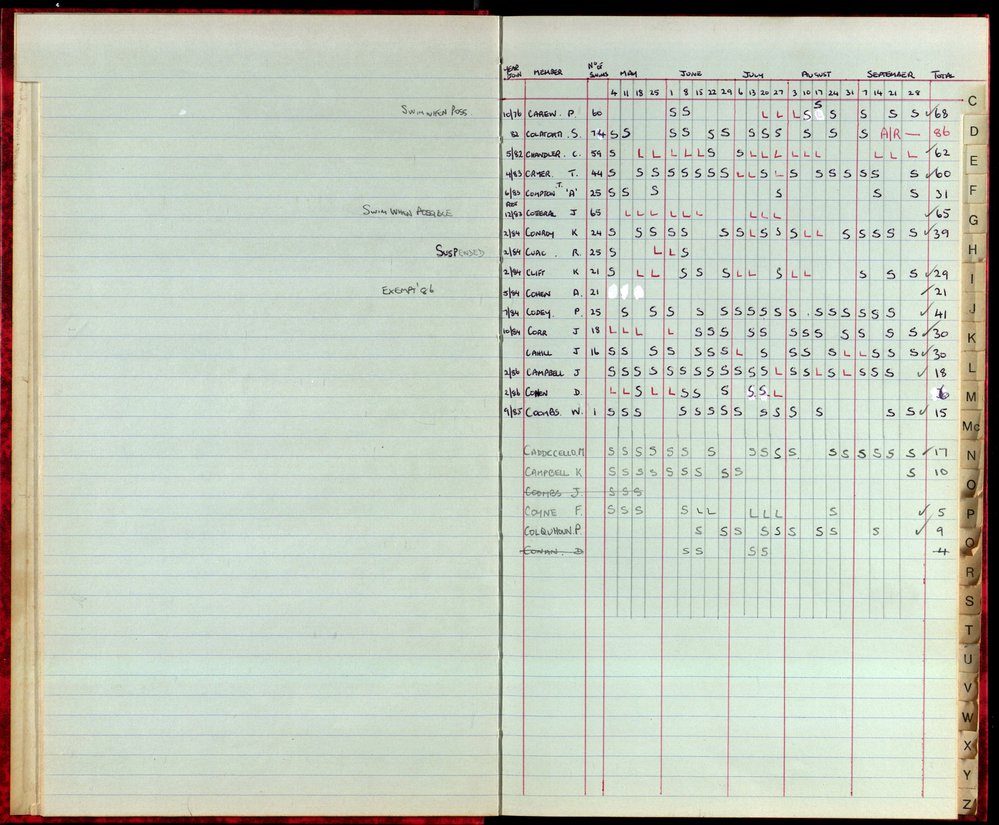 YEAR JOIN MEMBER Nº OF SWIMS MAY JUNE JULY AUGUST SEPTEMBER TOTAL
4 11 18 25 1 8 15 22 29 6 13 20 27 3 10 17 24 31 7 14 21 28
SWIM WHEN POSS 10/76 CAREW. P. 60 S S L L L S S S S S S ✓ 68
82 S. 74 S S S S S S S S S S S S A/R — 86
5/82 CHANDLER. C. 59 S L L L L L S S L L L L L L L L L ✓ 62
4/83 CRYER. T. 44 S S S S S S S S L L S L S S S S S S S ✓ 60
6/83 COMPTON T. 'A' 25 S S S S S S 31
SWIM WHEN POSSIBLE 12/83 COTTERAL J 65 L L L L L L L L L ✓ 65
2/84 CONROY K 24 S S S S S S S L S S S L L S S S S S ✓ 39
SUSPENDED 2/84 R. 25 S L L S
2/84 CLIFT K 21 S L L S S S L L S L L S S S ✓ 29
EXEMPT '86 5/84 COHEN A. 21 ✓ 21
7/84 CODEY. P. 25 S S S S S S S S S S S S S S S S S ✓ 41
10/84 CORR J 18 L L L L S S S S S S S S S S S S ✓ 30
CAHILL J 16 S S S S S S S L S S S S L L S S S S ✓ 30
2/86 CAMPBELL J S S S S S S S S S S S S L S S L S L S S S ✓ 18
2/86 COHEN D. L L S L L S S S S S L 6
9/85 COOMBS. W. 1 S S S S S S S S S S S S S S ✓ 15
M S S S S S S S S S S S S S S S S S ✓ 17
CAMPBELL K S S S S S S S S S S 10
COOMBS J. S S S
COYNE F. S S S S L L L L L S ✓ 5
COLQUHOUN. P. S S S S S S S S S ✓ 9
CONAN. D S S S S 4
C
D
E
F
G
H
I
J
K
L
M
Mc
N
O
P
Q
R
S
T
U
V
W
X
Y
Z